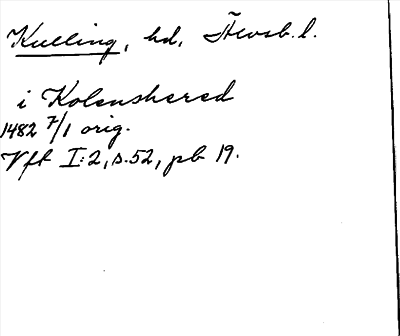 Kulling, hd, Älvsb. l.
i Kolenshered
1482 7/1 orig.
Vft I:2, s. 52, pb 19.